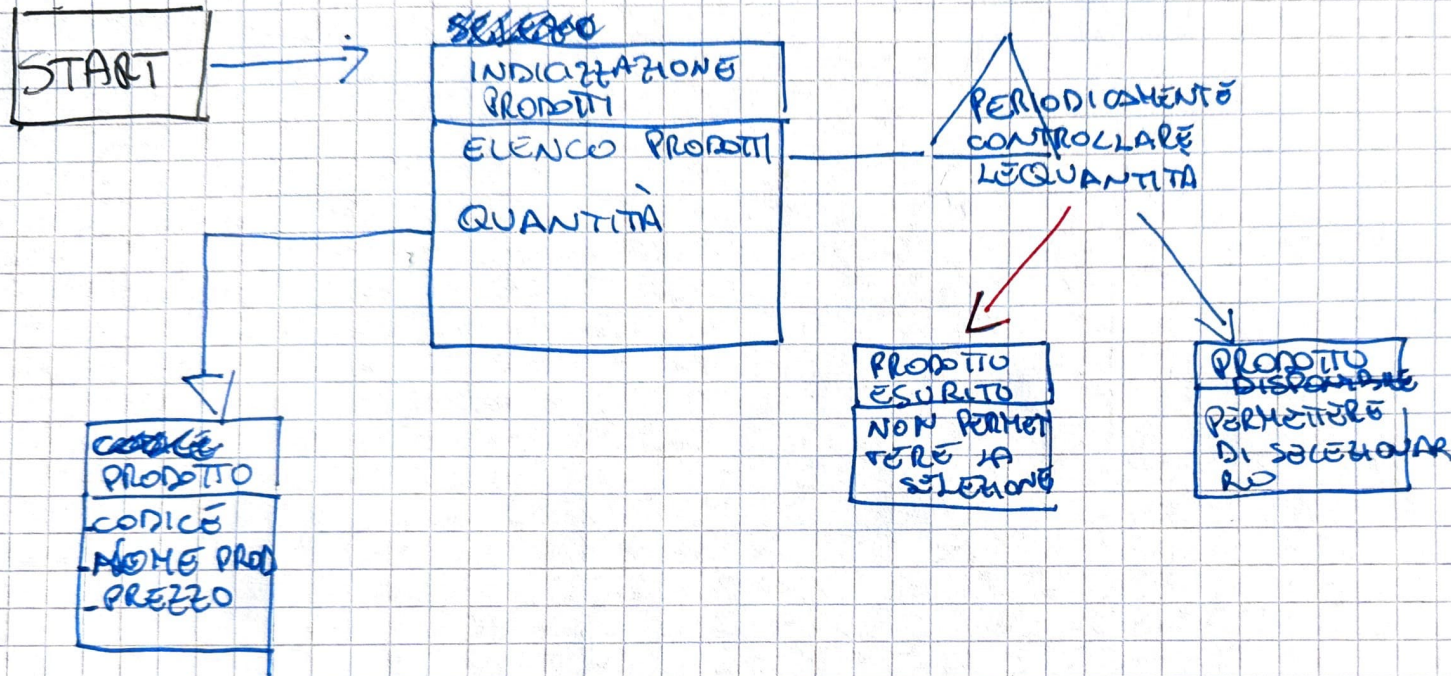 START
INDICIZZAZIONE
PRODOTTI
ELENCO PRODOTTI
QUANTITÀ
PERIODICAMENTE
CONTROLLARE
LE QUANTITÀ
PRODOTTO
ESURITO
NON PERMET
TERE LA
SELEZIONE
PRODOTTO
DISPONIBILE
PERMETTERE
DI SELEZIONAR
LO
PRODOTTO
-CODICE
-NOME PROD
-PREZZO